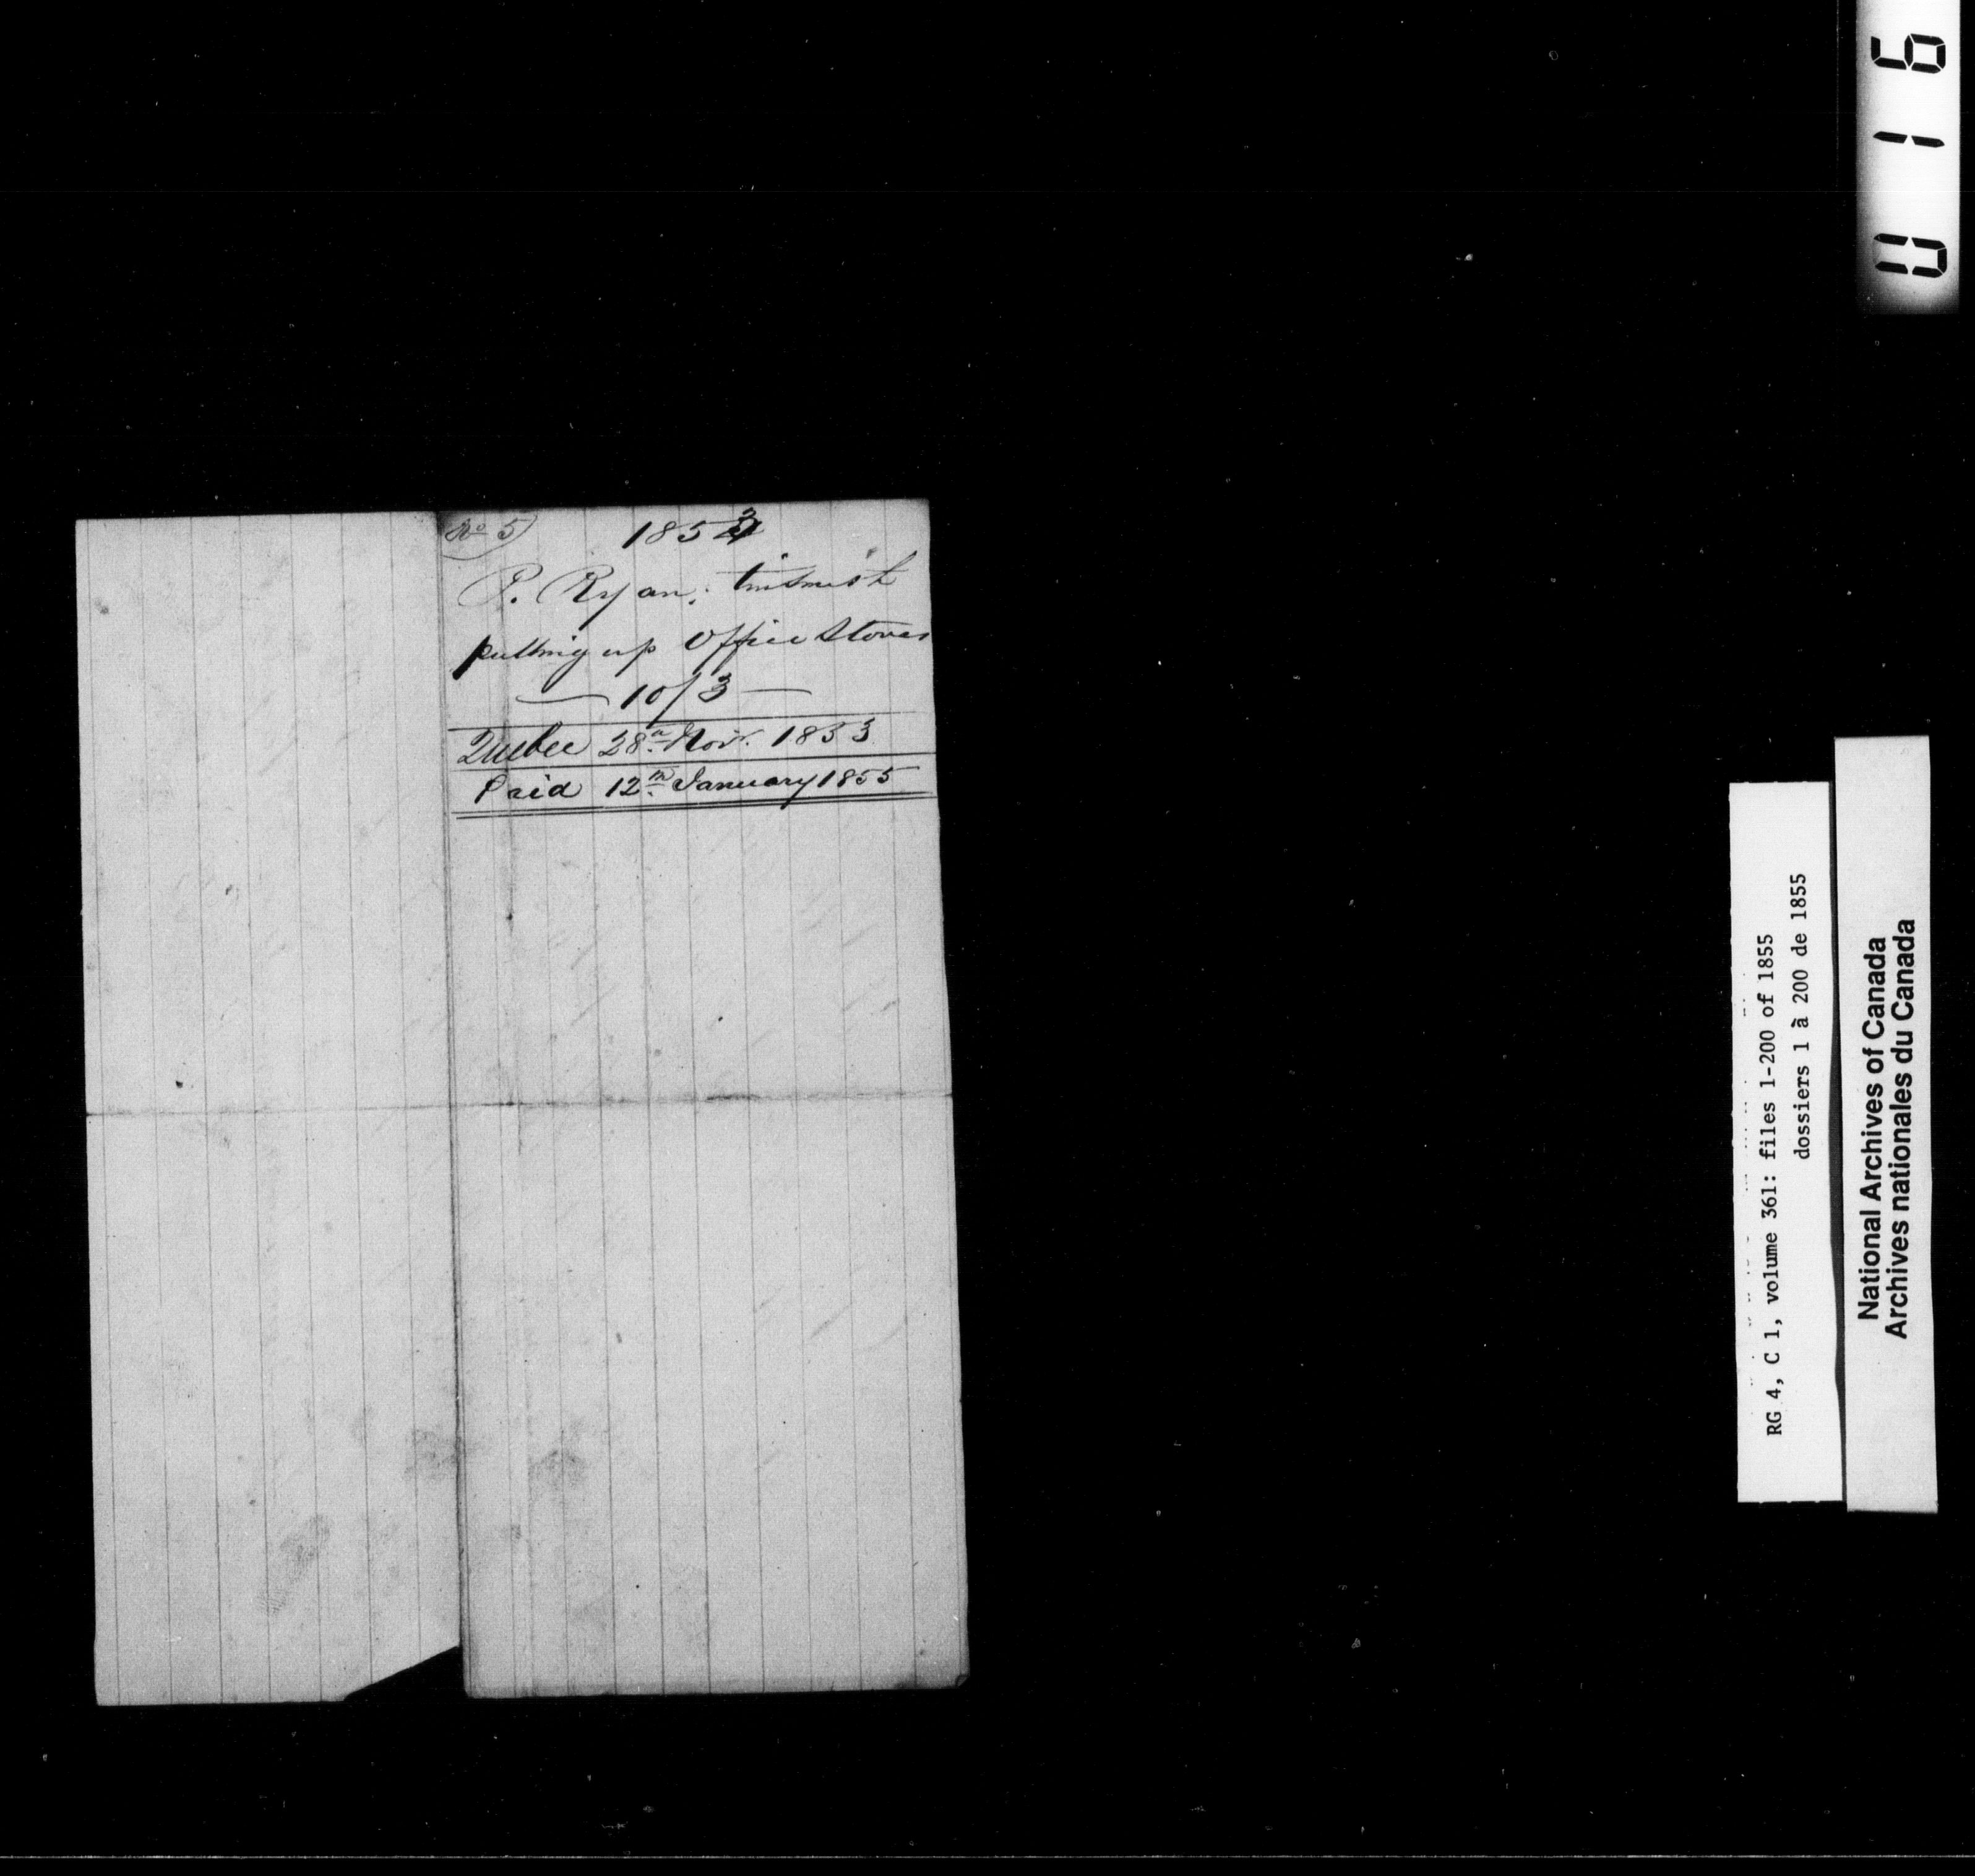 No 5
1853
P. Ryan, tinsmith
putting up Office Stoves
— 10/3 —
Quebec 28th Novr. 1853
Paid 12th January 1855
0116
RG 4, C 1, volume 361: files 1-200 of 1855
dossiers 1 à 200 de 1855
National Archives of Canada
Archives nationales du Canada